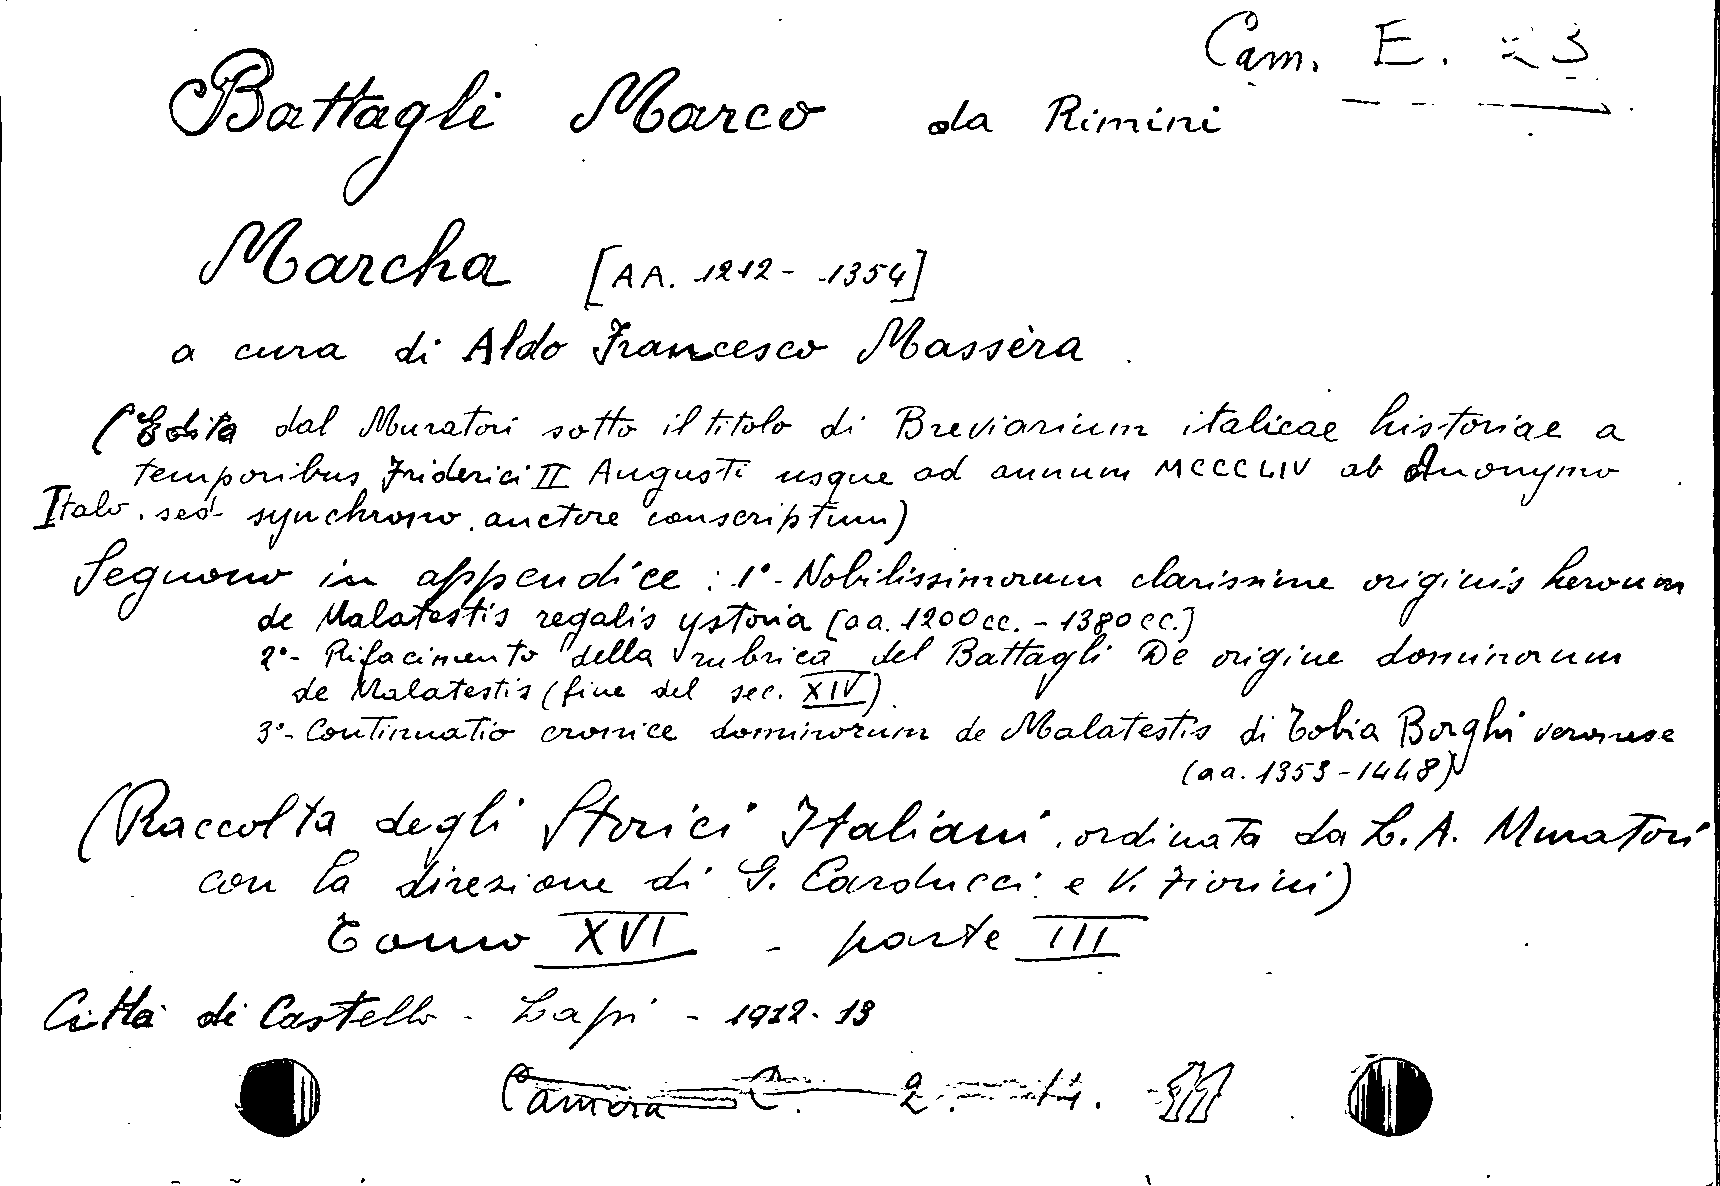 Cam. E. 23
Battagli Marco da Rimini
Marcha [AA. 1212 - 1354]
a cura di Aldo Francesco Massèra.
(Edita dal Muratori sotto il titolo di Breviarium italicae historiae a
temporibus Friderici II Augusti usque ad annum MCCCLIV ab Anonymo
Italo, sed synchrono, auctore conscriptum)
Seguono in appendice: 1º- Nobilissimorum clarissime originis heroum
de Malatestis regalis ystoria (aa. 1200cc. - 1380cc.)
2º- Rifacimento della rubrica del Battagli De origine dominorum
de Malatestis (fine del sec. XIV).
3º- Continuatio cronice dominorum de Malatestis di Tobia Borghi veronese
(aa. 1353-1448)
(Raccolta degli Storici Italiani, ordinata da L. A. Muratori
con la direzione di G. Carducci e V. Fiorini)
Tomo XVI - parte III
Città di Castello - Lapi - 1912-13
Camera C. 2.